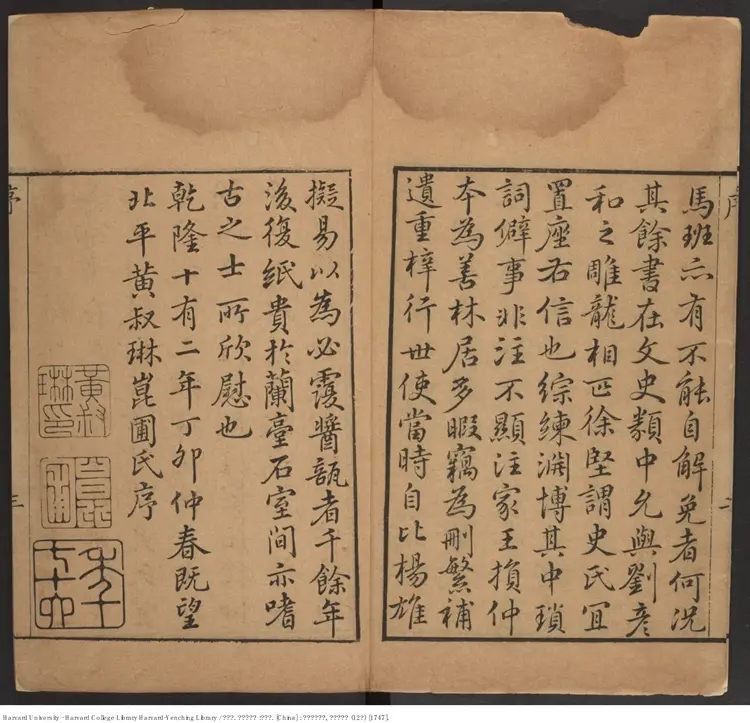 序
二
馬班亦有不能自解免者何況
其餘書在文史類中允與劉彥
和之雕龍相匹徐堅謂史氏宜
置座右信也綜練淵博其中瑣
詞僻事非注不顯注家王損仲
本為善林居多暇竊為刪繁補
遺重梓行世使當時自比楊雄
擬易以為必覆醬瓿者千餘年
後復紙貴於蘭臺石室間亦嗜
古之士所欣慰也
乾隆十有二年丁卯仲春既望
北平黃叔琳崑圃氏序
黃叔
琳印
崑
圃
序
三
Harvard University - Harvard College Library Harvard-Yenching Library / ???. ????? : ???. [China] : ??????, ????? (12?) [1747].